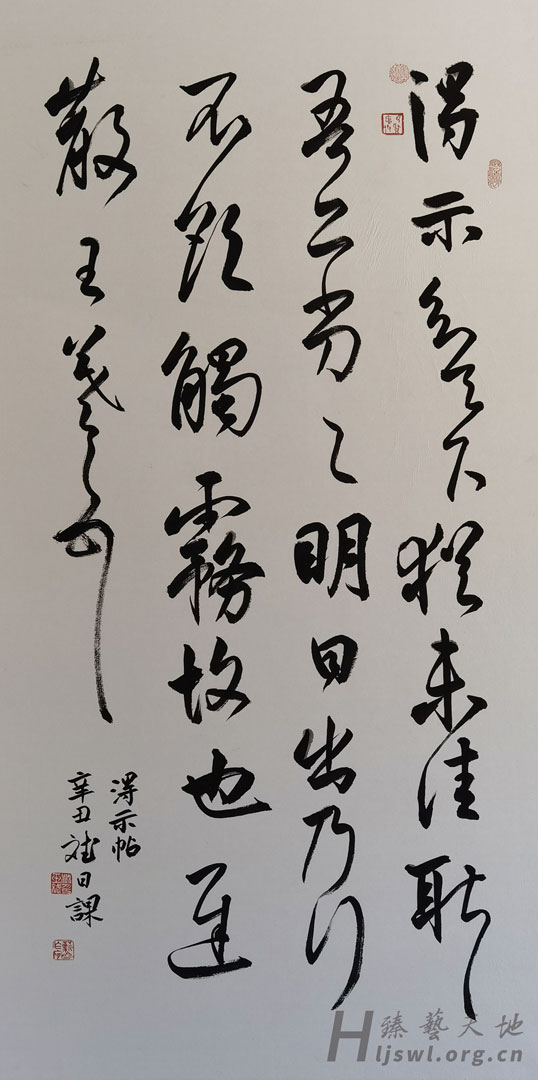 得示知足下猶未佳耿〻
吾亦劣〻明日出乃行
不欲觸霧故也遲
散王羲之頓首
得示帖
辛丑斌日課
臻藝天地
Hljswl.org.cn